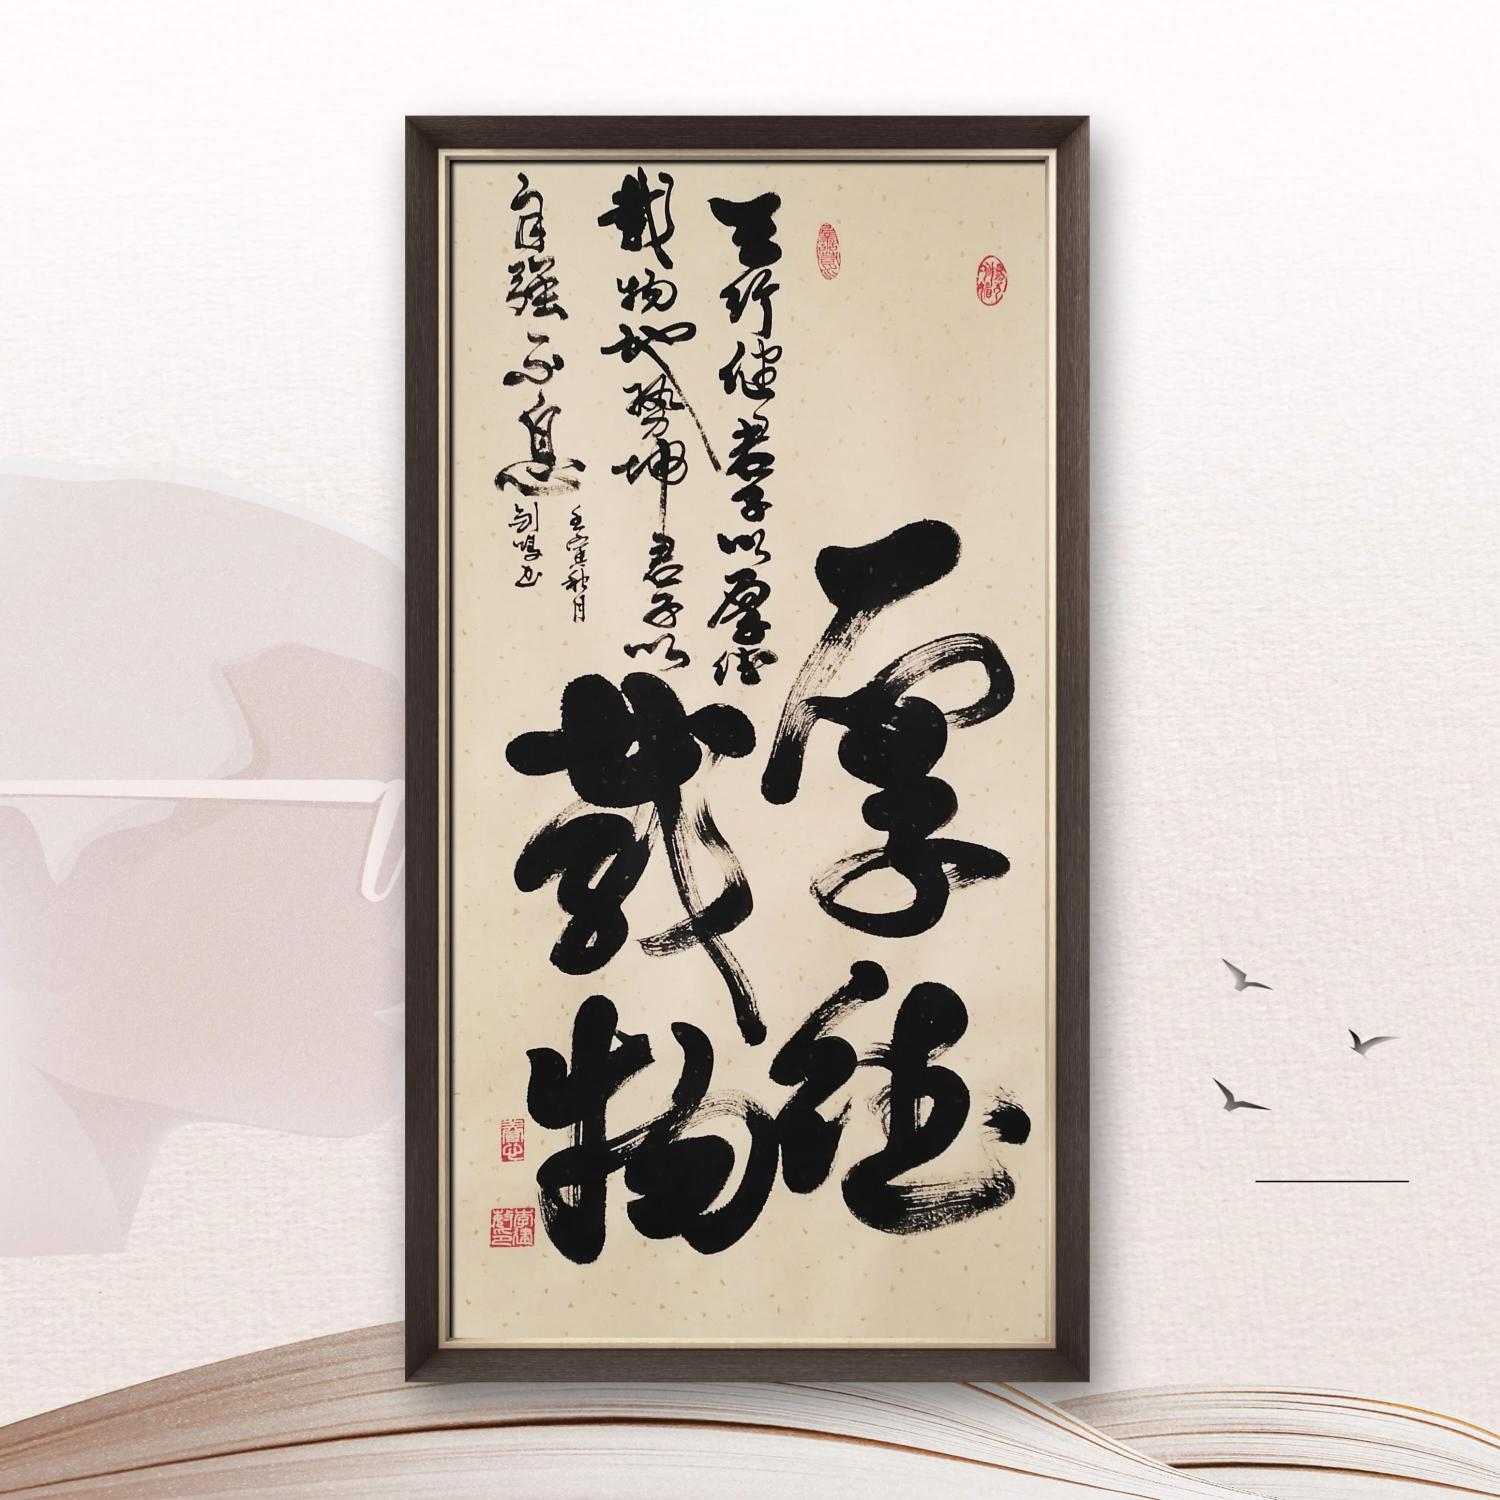 厚德
载物
天行健君子以厚德
载物地势坤君子以
自强不息
壬寅秋月